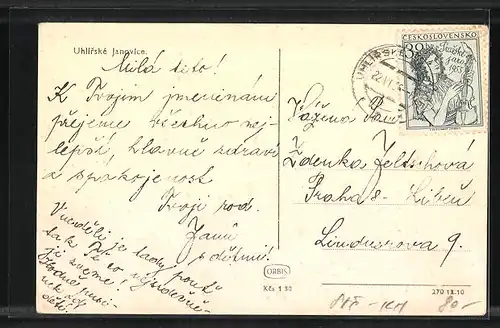 Uhlířské Janovice.
Milá teto!
K Tvojim jmeninám
přejeme všechno nej-
lepší, hlavně zdraví
a spokojenost
Tvoji rod.
Janů
s dětmi.
V neděli je tady pouť
tak Tě co nejsrdečně-
ji zveme!
děti.
ČESKOSLOVENSKO
30
jaro
1955
UHLÍŘSKÉ
22.VI.
Vážená Paní
Zdenka Jeltschová
Praha 8 - Libeň
Lindnerova 9.
ORBIS
Kčs 1 50
270 13.10
80-